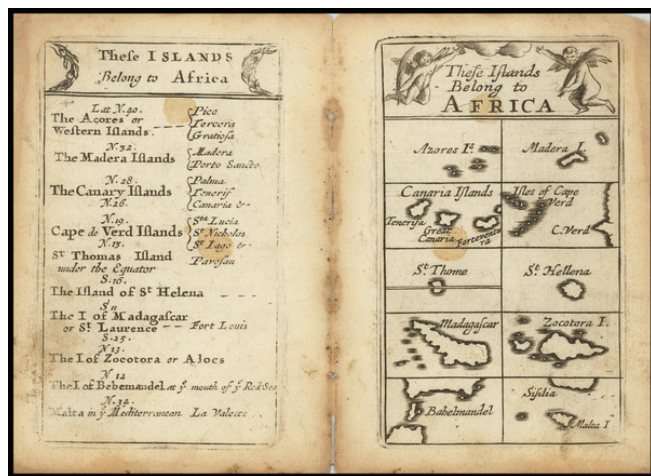 These ISLANDS
Belong to Africa
Lat N.40.
The Açores or
Western Islands.
Pico
Tercera
Gratiosa
N.32.
The Madera Islands
Madera
Porto Sancto
N.28.
The Canary Islands
N.26.
Palma.
Tenerif
Canaria &-
N.19.
Cape de Verd Islands
N.13.
Sta Lucia
St Nicholas
St Iago &-
St Thomas Island
under the Equator
Pavosan
S.16.
The Island of St Helena
S 11
The I of Madagascar
or St Laurence -- Fort Louis
S.25.
N.13.
The I of Zocotora or
N 12
The I of Bebemandel at ye mouth of ye Red Sea
N.34.
Malta in ye Mediterranean La Valette
These Islands
Belong to
AFRICA
Azores Is.
Madera I.
Canaria Islands
Tenerifa
Great
Canaria
Forteventu
ra
Isles of Cape
Verd
C.Verd
St Thome
St Hellena
Madagascar
Zocotora I.
Babelmandel
Sisilia
Malta I